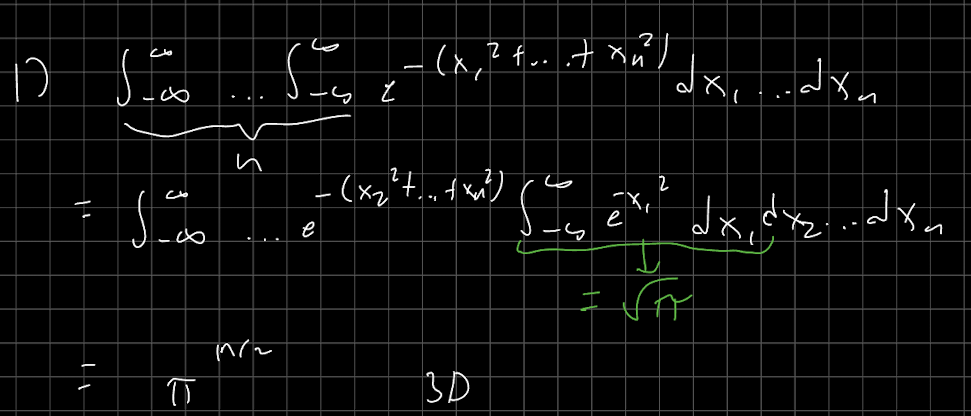 1) ∫_{-∞}^{∞} ... ∫_{-∞}^{∞} e^{-(x_1^2+...+x_n^2)} dx_1...dx_n
n
= ∫_{-∞}^{∞} ... e^{-(x_2^2+...+x_n^2)} ∫_{-∞}^{∞} e^{-x_1^2} dx_1 dx_2...dx_n
= √π
= π^{n/2} 3D